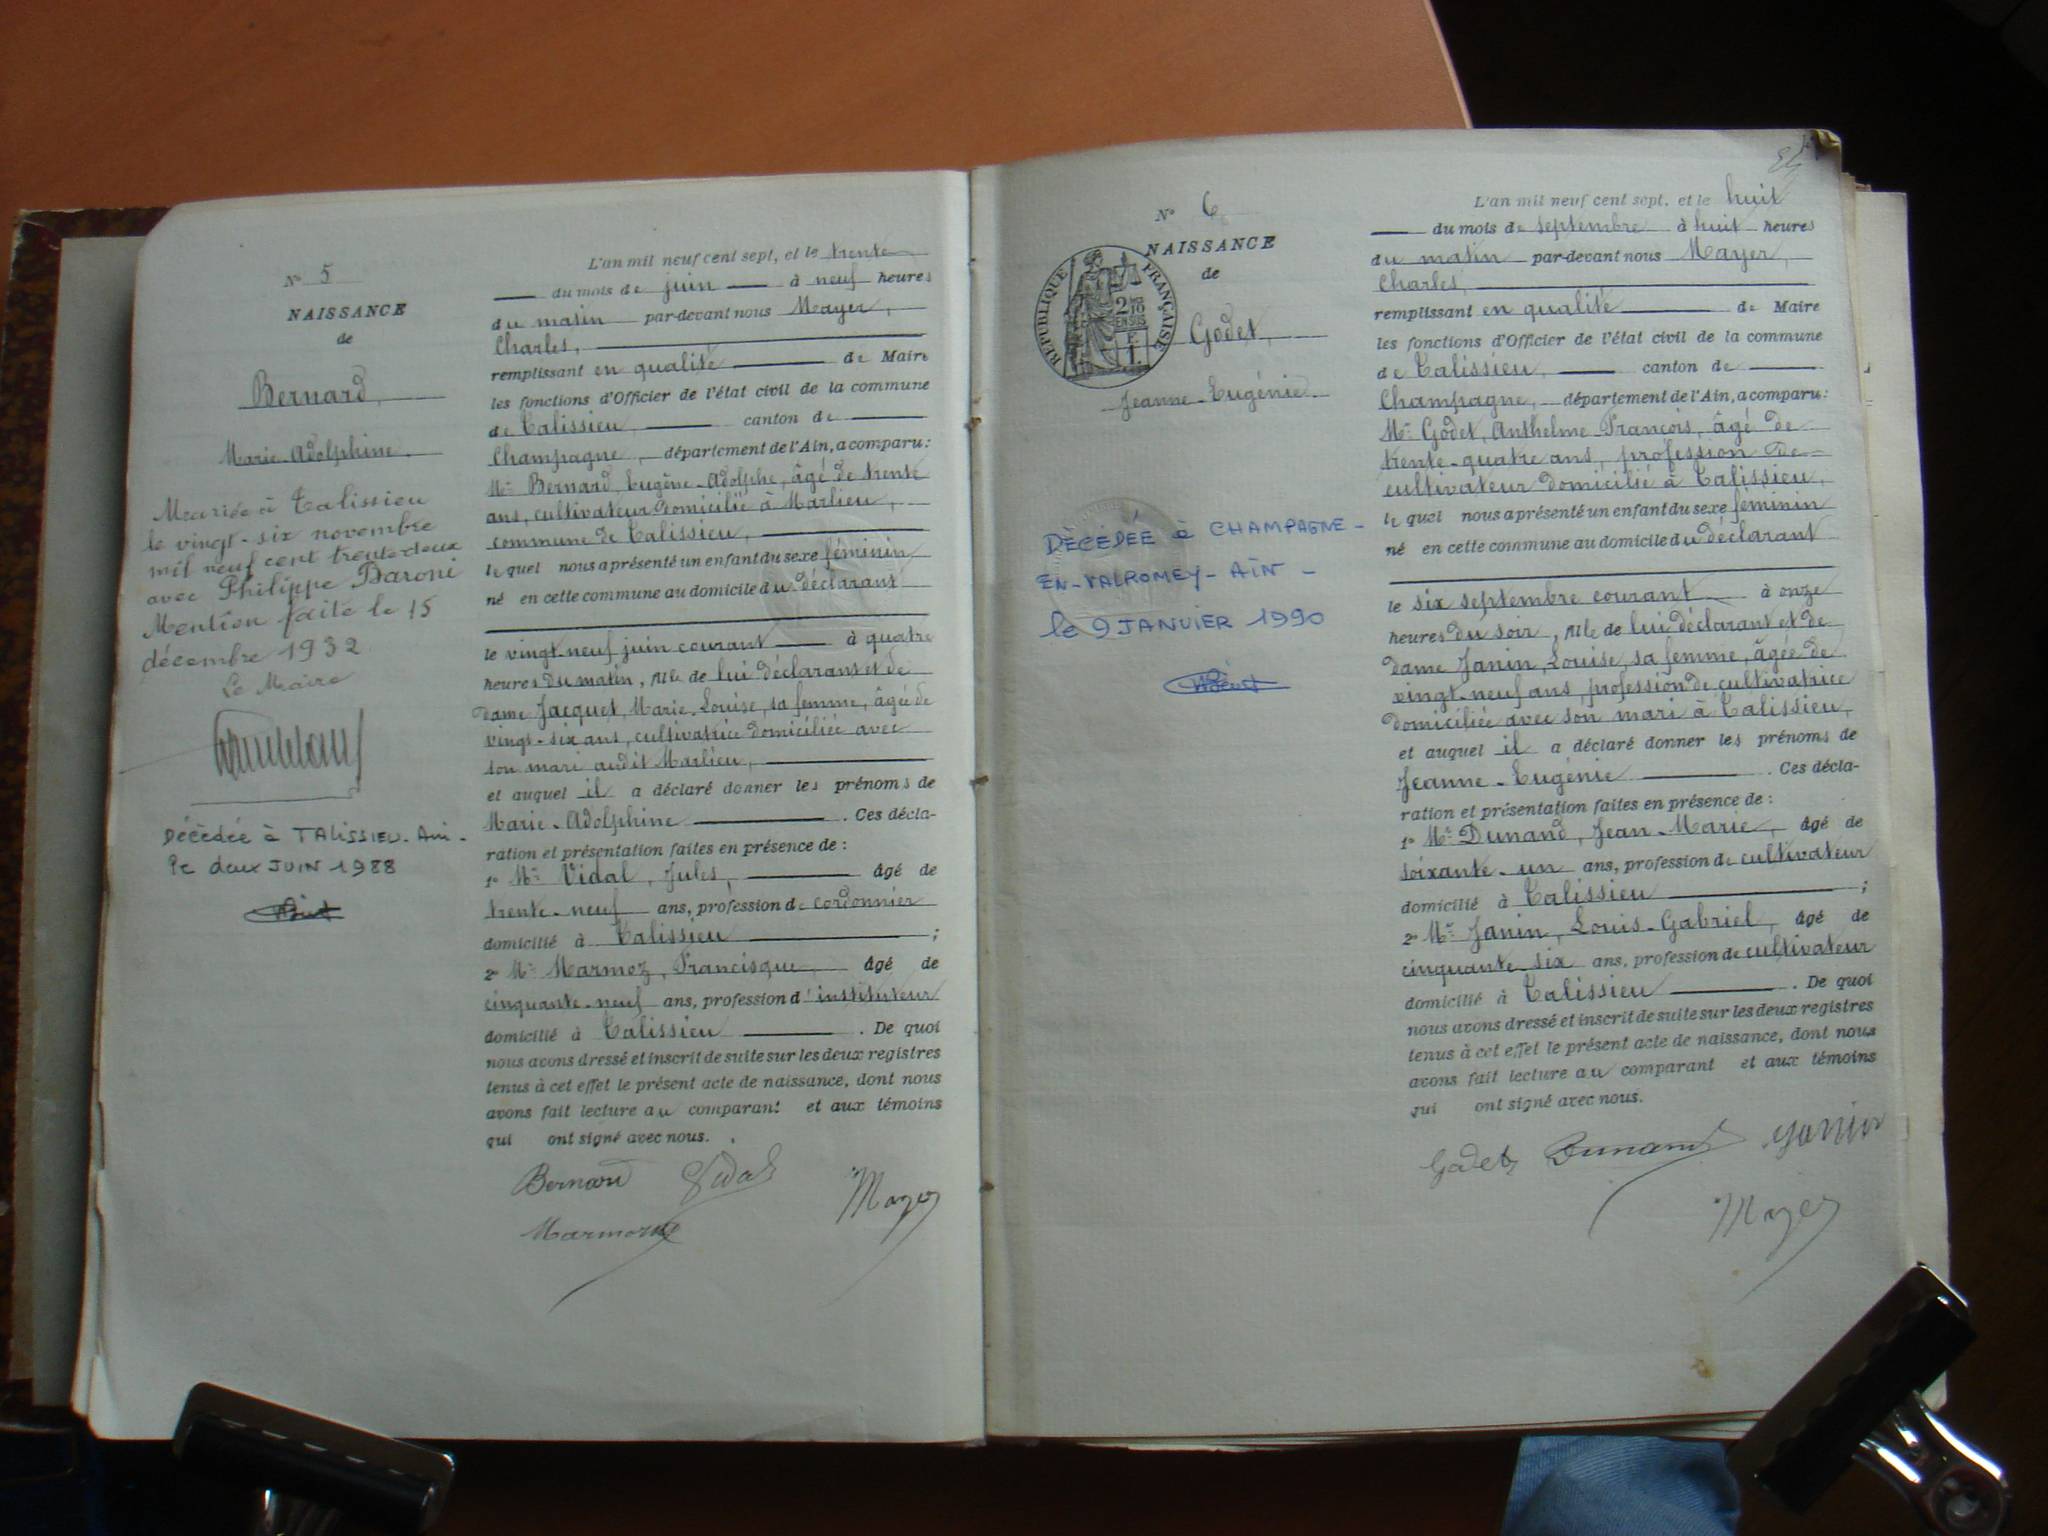 N° 5
NAISSANCE
de
Bernard,
Marie-Adolphine,
Mariée à Talissieu
le vingt-six novembre
mil neuf cent trente deux
avec Philippe Baroni
Mention faite le 15
décembre 1932
Le Maire
Décèdée à TALISSIEU-Ain-
le deux JUIN 1988
L'an mil neuf cent sept, et le trente
du mois de juin à neuf heures
du matin par-devant nous Mayer,
Charles,
remplissant en qualité de Maire
les fonctions d'Officier de l'état civil de la commune
de Talissieu, canton de
Champagne, département de l'Ain, a comparu:
Mr Bernard, Eugène-Adolphe, âgé de trente
ans, cultivateur domicilié à Marlieu,
commune de Talissieu,
lequel nous a présenté un enfant du sexe féminin
né en cette commune au domicile du déclarant
le vingt-neuf juin courant à quatre
heures du matin, fille de lui déclarant et de
dame Jacquet, Marie-Louise, sa femme, âgée de
vingt-six ans, cultivatrice domiciliée avec
son mari audit Marlieu,
et auquel il a déclaré donner les prénoms de
Marie-Adolphine. Ces décla-
ration et présentation faites en présence de:
1° Mr Vidal, Jules, âgé de
trente-neuf ans, profession de cordonnier
domicilié à Talissieu;
2° Mr Marmoz, Francisque, âgé de
cinquante-neuf ans, profession d'instituteur
domicilié à Talissieu. De quoi
nous avons dressé et inscrit de suite sur les deux registres
tenus à cet effet le présent acte de naissance, dont nous
avons fait lecture au comparant et aux témoins
qui ont signé avec nous.
Bernard Vidal
Marmoz Mayer
N° 6
NAISSANCE
de
RÉPUBLIQUE FRANÇAISE
2/10 EN SUS
Godet,
Jeanne-Eugénie
DÈCÈDÉE à CHAMPAGNE-
EN-VALROMEY-AIN-
le 9 JANVIER 1990
L'an mil neuf cent sept, et le huit
du mois de septembre à huit heures
du matin par-devant nous Mayer,
Charles,
remplissant en qualité de Maire
les fonctions d'Officier de l'état civil de la commune
de Talissieu, canton de
Champagne, département de l'Ain, a comparu:
Mr Godet, Anthelme François, âgé de
trente-quatre ans, profession de
cultivateur domicilié à Talissieu,
lequel nous a présenté un enfant du sexe féminin
né en cette commune au domicile du déclarant
le six septembre courant à onze
heures du soir, fille de lui déclarant et de
dame Janin, Louise, sa femme, âgée de
vingt-neuf ans, profession de cultivatrice
domiciliée avec son mari à Talissieu,
et auquel il a déclaré donner les prénoms de
Jeanne-Eugénie. Ces décla-
ration et présentation faites en présence de:
1° Mr Dunand, Jean-Marie, âgé de
soixante-un ans, profession de cultivateur
domicilié à Talissieu;
2° Mr Janin, Louis-Gabriel, âgé de
cinquante-six ans, profession de cultivateur
domicilié à Talissieu. De quoi
nous avons dressé et inscrit de suite sur les deux registres
tenus à cet effet le présent acte de naissance, dont nous
avons fait lecture au comparant et aux témoins
qui ont signé avec nous.
Godet Dunand Janin
Mayer